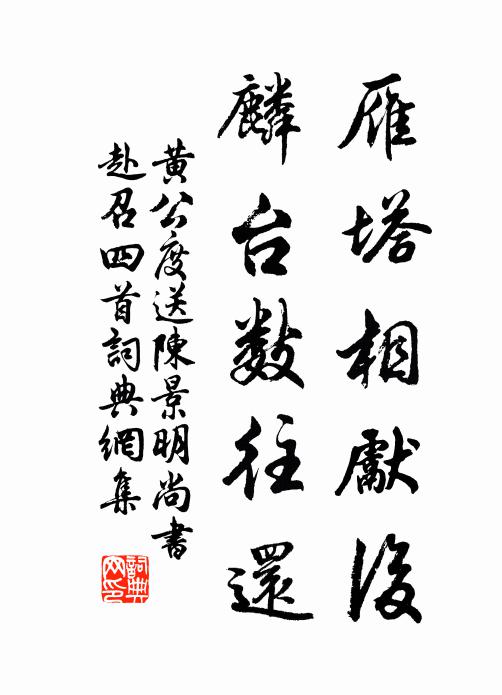 雁塔相獻後
麟台数往還
黃公度送陳景明尚書
赴召四首詞典網集
詞典
网印